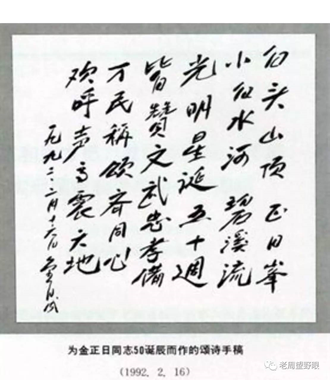 白头山顶正日峯
小白水河碧溪流
光明星诞五十週
皆赞文武忠孝備
万民称颂齐同心
欢呼声高震天地
一九九二·二月十六日 金日成
为金正日同志50诞辰而作的颂诗手稿
(1992. 2. 16)
老周望野眼